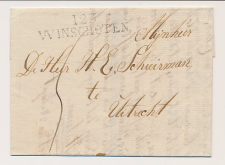 123
WINSCHOTEN
Mijnheer
De Heer H. E. Schuirman
te
Utrecht